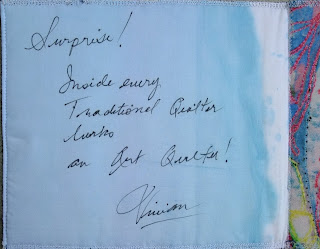 Surprise!
Inside every
Traditional Quilter
lurks
an Art Quilter!
Vivian